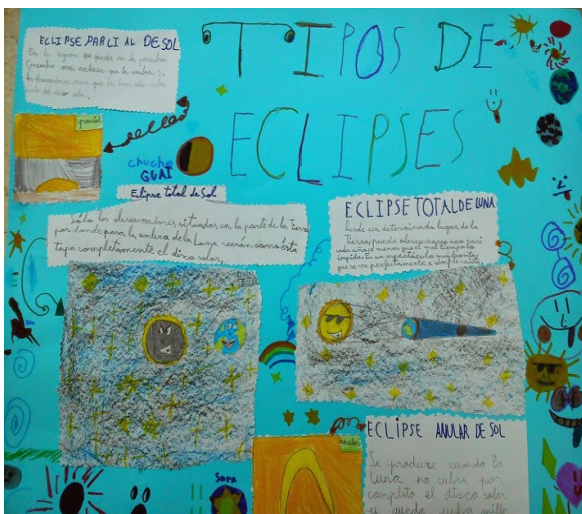 TIPOS DE
ECLIPSES
ECLIPSE PARCIAL DE SOL
En la región que queda en la penumbra
(mucho más extensa que la umbra),
los observadores verán que la Luna sólo cubre
parte del disco solar.
parcial
chucho
GUAI
Elipse total de Sol
Sólo los observadores situados en la parte de la Tierra
por donde pasa la umbra de la Luna verán cómo ésta
tapa completamente el disco solar.
ECLIPSE TOTAL DE LUNA
Desde un determinado lugar de la
Tierra puede observarse uno casi
cada año, a menos que el mal tiempo lo
impida. Es un espectáculo muy bonito,
que se ve perfectamente a simple vista.
ECLIPSE ANULAR DE SOL
Se produce cuando la
Luna no cubre por
completo el disco solar
y queda
anular
Sara